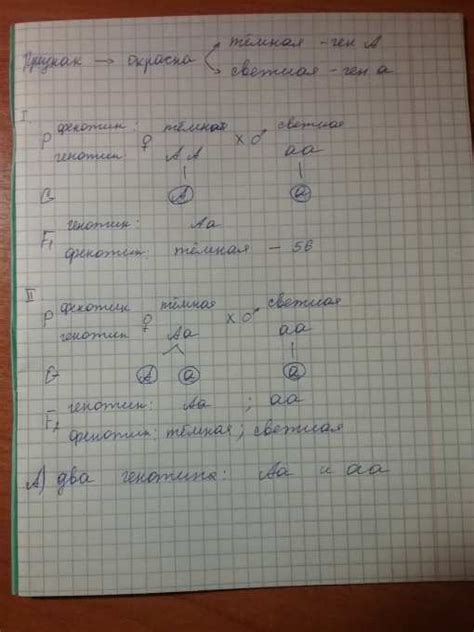 Признак → окраска тёмная - ген А
светлая - ген а
I
P фенотип: ♀ тёмная х ♂ светлая
генотип: АА аа
G А а
F₁ генотип: Аа
фенотип: тёмная - 56
II
P фенотип ♀ тёмная х ♂ светлая
генотип Аа аа
G А а а
F₂ генотип: Аа ; аа
фенотип: тёмная; светлая
А) два генотипа: Аа и аа